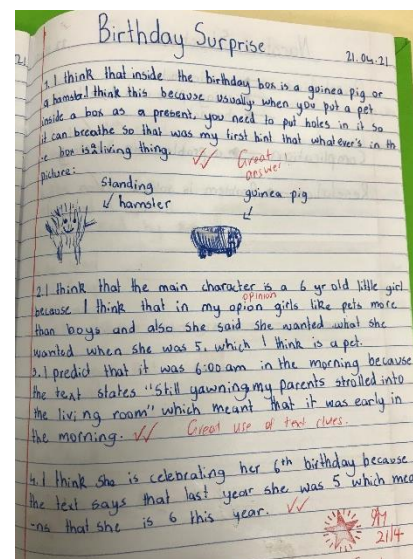 Birthday Surprise
21.04.21
1. I think that inside the birthday box is a guinea pig or
a hamster. I think this because usually when you put a pet
inside a box as a present, you need to put holes in it so
it can breathe so that was my first hint that whatever's in th
e box is a living thing. Great
answer
picture:
Standing
hamster
guinea pig
2. I think that the main character is a 6 yr old little girl
opinion
because I think that in my opion girls like pets more
than boys and also she said she wanted what she
wanted when she was 5, which I think is a pet.
3. I predict that it was 6:00 am in the morning because
the text states "Still yawning, my parents strolled into
the living room" which meant that it was early in
the morning. Great use of text clues.
4. I think she is celebrating her 6th birthday because
the text says that last year she was 5 which mea
-ns that she is 6 this year.
21/4